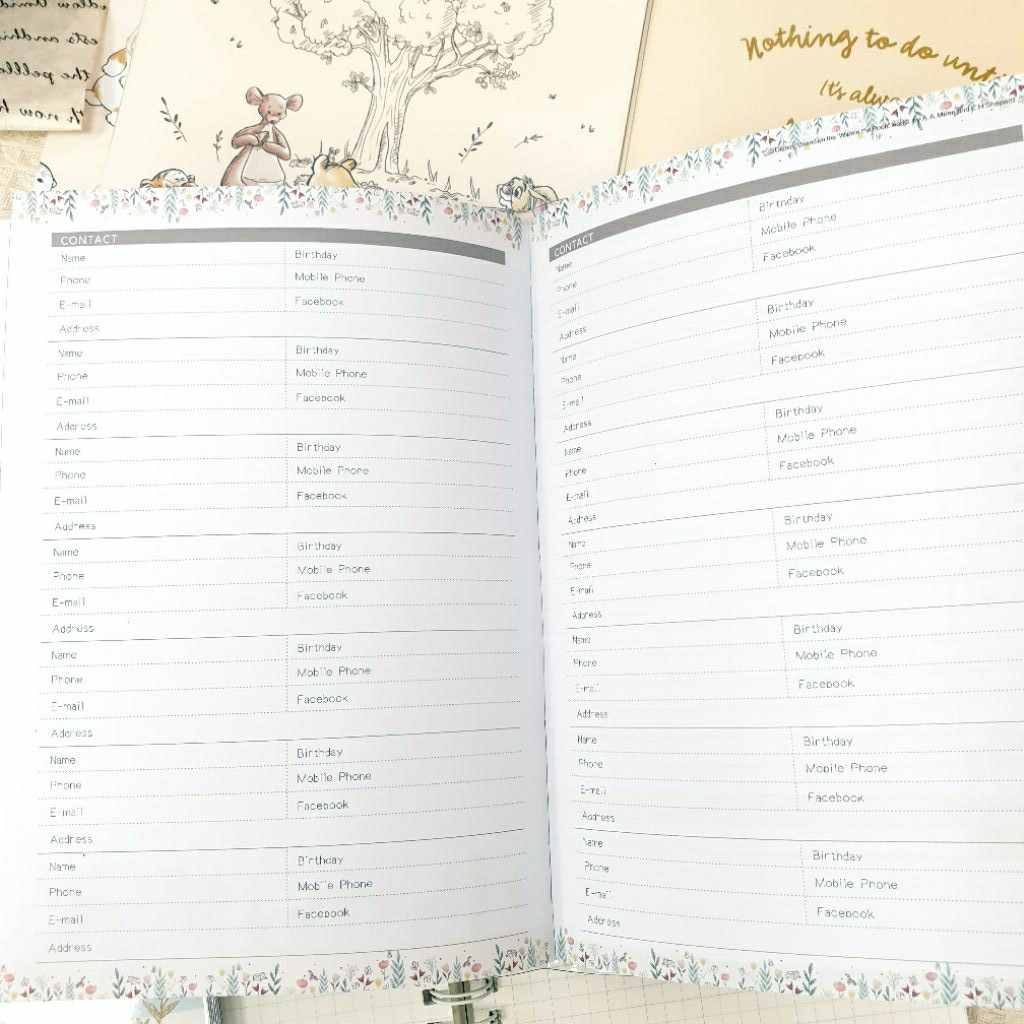 Nothing to do
It's
CONTACT
Name Birthday
Phone Mobile Phone
E-mail Facebook
Address
Name Birthday
Phone Mobile Phone
E-mail Facebook
Address
Name Birthday
Phone Mobile Phone
E-mail Facebook
Address
Name Birthday
Phone Mobile Phone
E-mail Facebook
Address
Name Birthday
Phone Mobile Phone
E-mail Facebook
Address
Name Birthday
Phone Mobile Phone
E-mail Facebook
Address
Name Birthday
Phone Mobile Phone
E-mail Facebook
Address
CONTACT
Name Birthday
Phone Mobile Phone
E-mail Facebook
Address
Name Birthday
Phone Mobile Phone
E-mail Facebook
Address
Name Birthday
Phone Mobile Phone
E-mail Facebook
Address
Name Birthday
Phone Mobile Phone
E-mail Facebook
Address
Name Birthday
Phone Mobile Phone
E-mail Facebook
Address
Name Birthday
Phone Mobile Phone
E-mail Facebook
Address
Name Birthday
Phone Mobile Phone
E-mail Facebook
Address